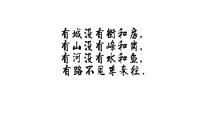 有城没有街和房，
有山没有峰和岗，
有河没有水和鱼，
有路不见车来往．